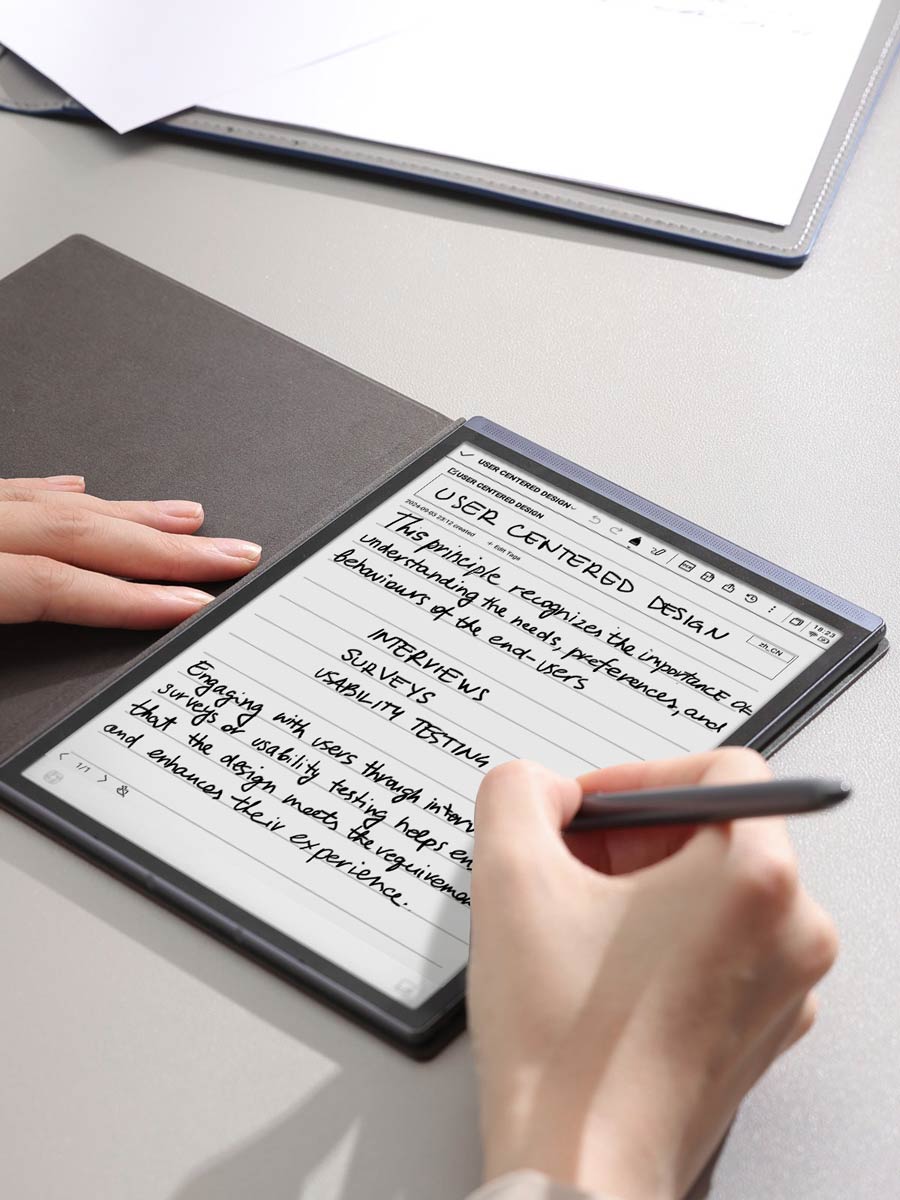 USER CENTERED DESIGN
18:23
USER CENTERED DESIGN
USER CENTERED DESIGN
zh_CN
2024-09-03 23:12 created + Edit Tags
This principle recognizes the importance of
understanding the needs, preferences, and
behaviours of the end-users
INTERVIEWS
SURVEYS
USABILITY TESTING
Engaging with users through
surveys or usability testing helps
that the design meets the
and enhances their experience.
1/1